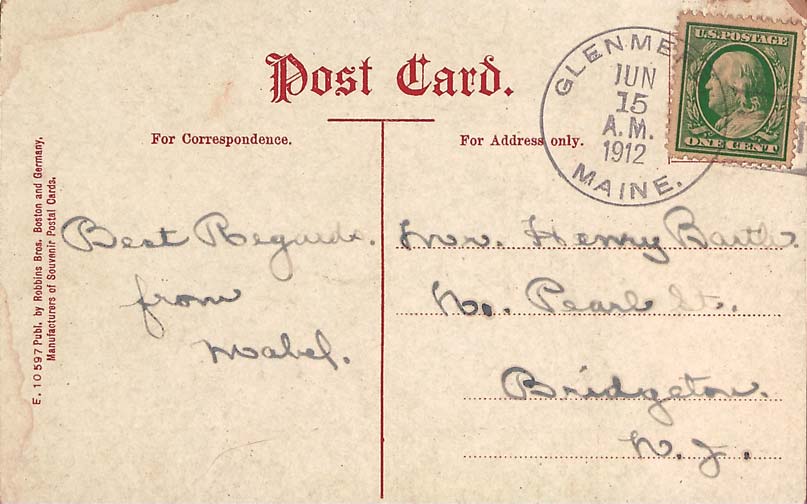 Post Card.
For Correspondence.
For Address only.
JUN
15
A.M.
1912
MAINE.
U.S. POSTAGE
ONE CENT
E. 10597 Publ. by Robbins Bros. Boston and Germany,
Manufacturers of Souvenir Postal Cards.
Best Regards.
from
Mabel.
Mr. Henry
No. Pearl St.
Bridgeton.
N.J.